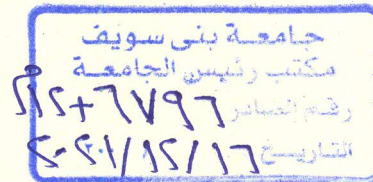 جامعة بنى سويف
مكتب رئيس الجامعة
رقم الصادر ٦٧٩٦
التاريخ ١٦/١٢/٢٠٢١